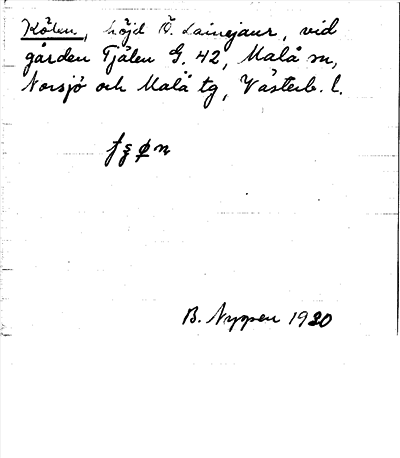 Kölen, höjd Ö. Lainejaur, vid
gården Tjälen G. 42, Malå sn,
Norsjö och Malå tg, Västerb. l.
B. Nyppen 1930